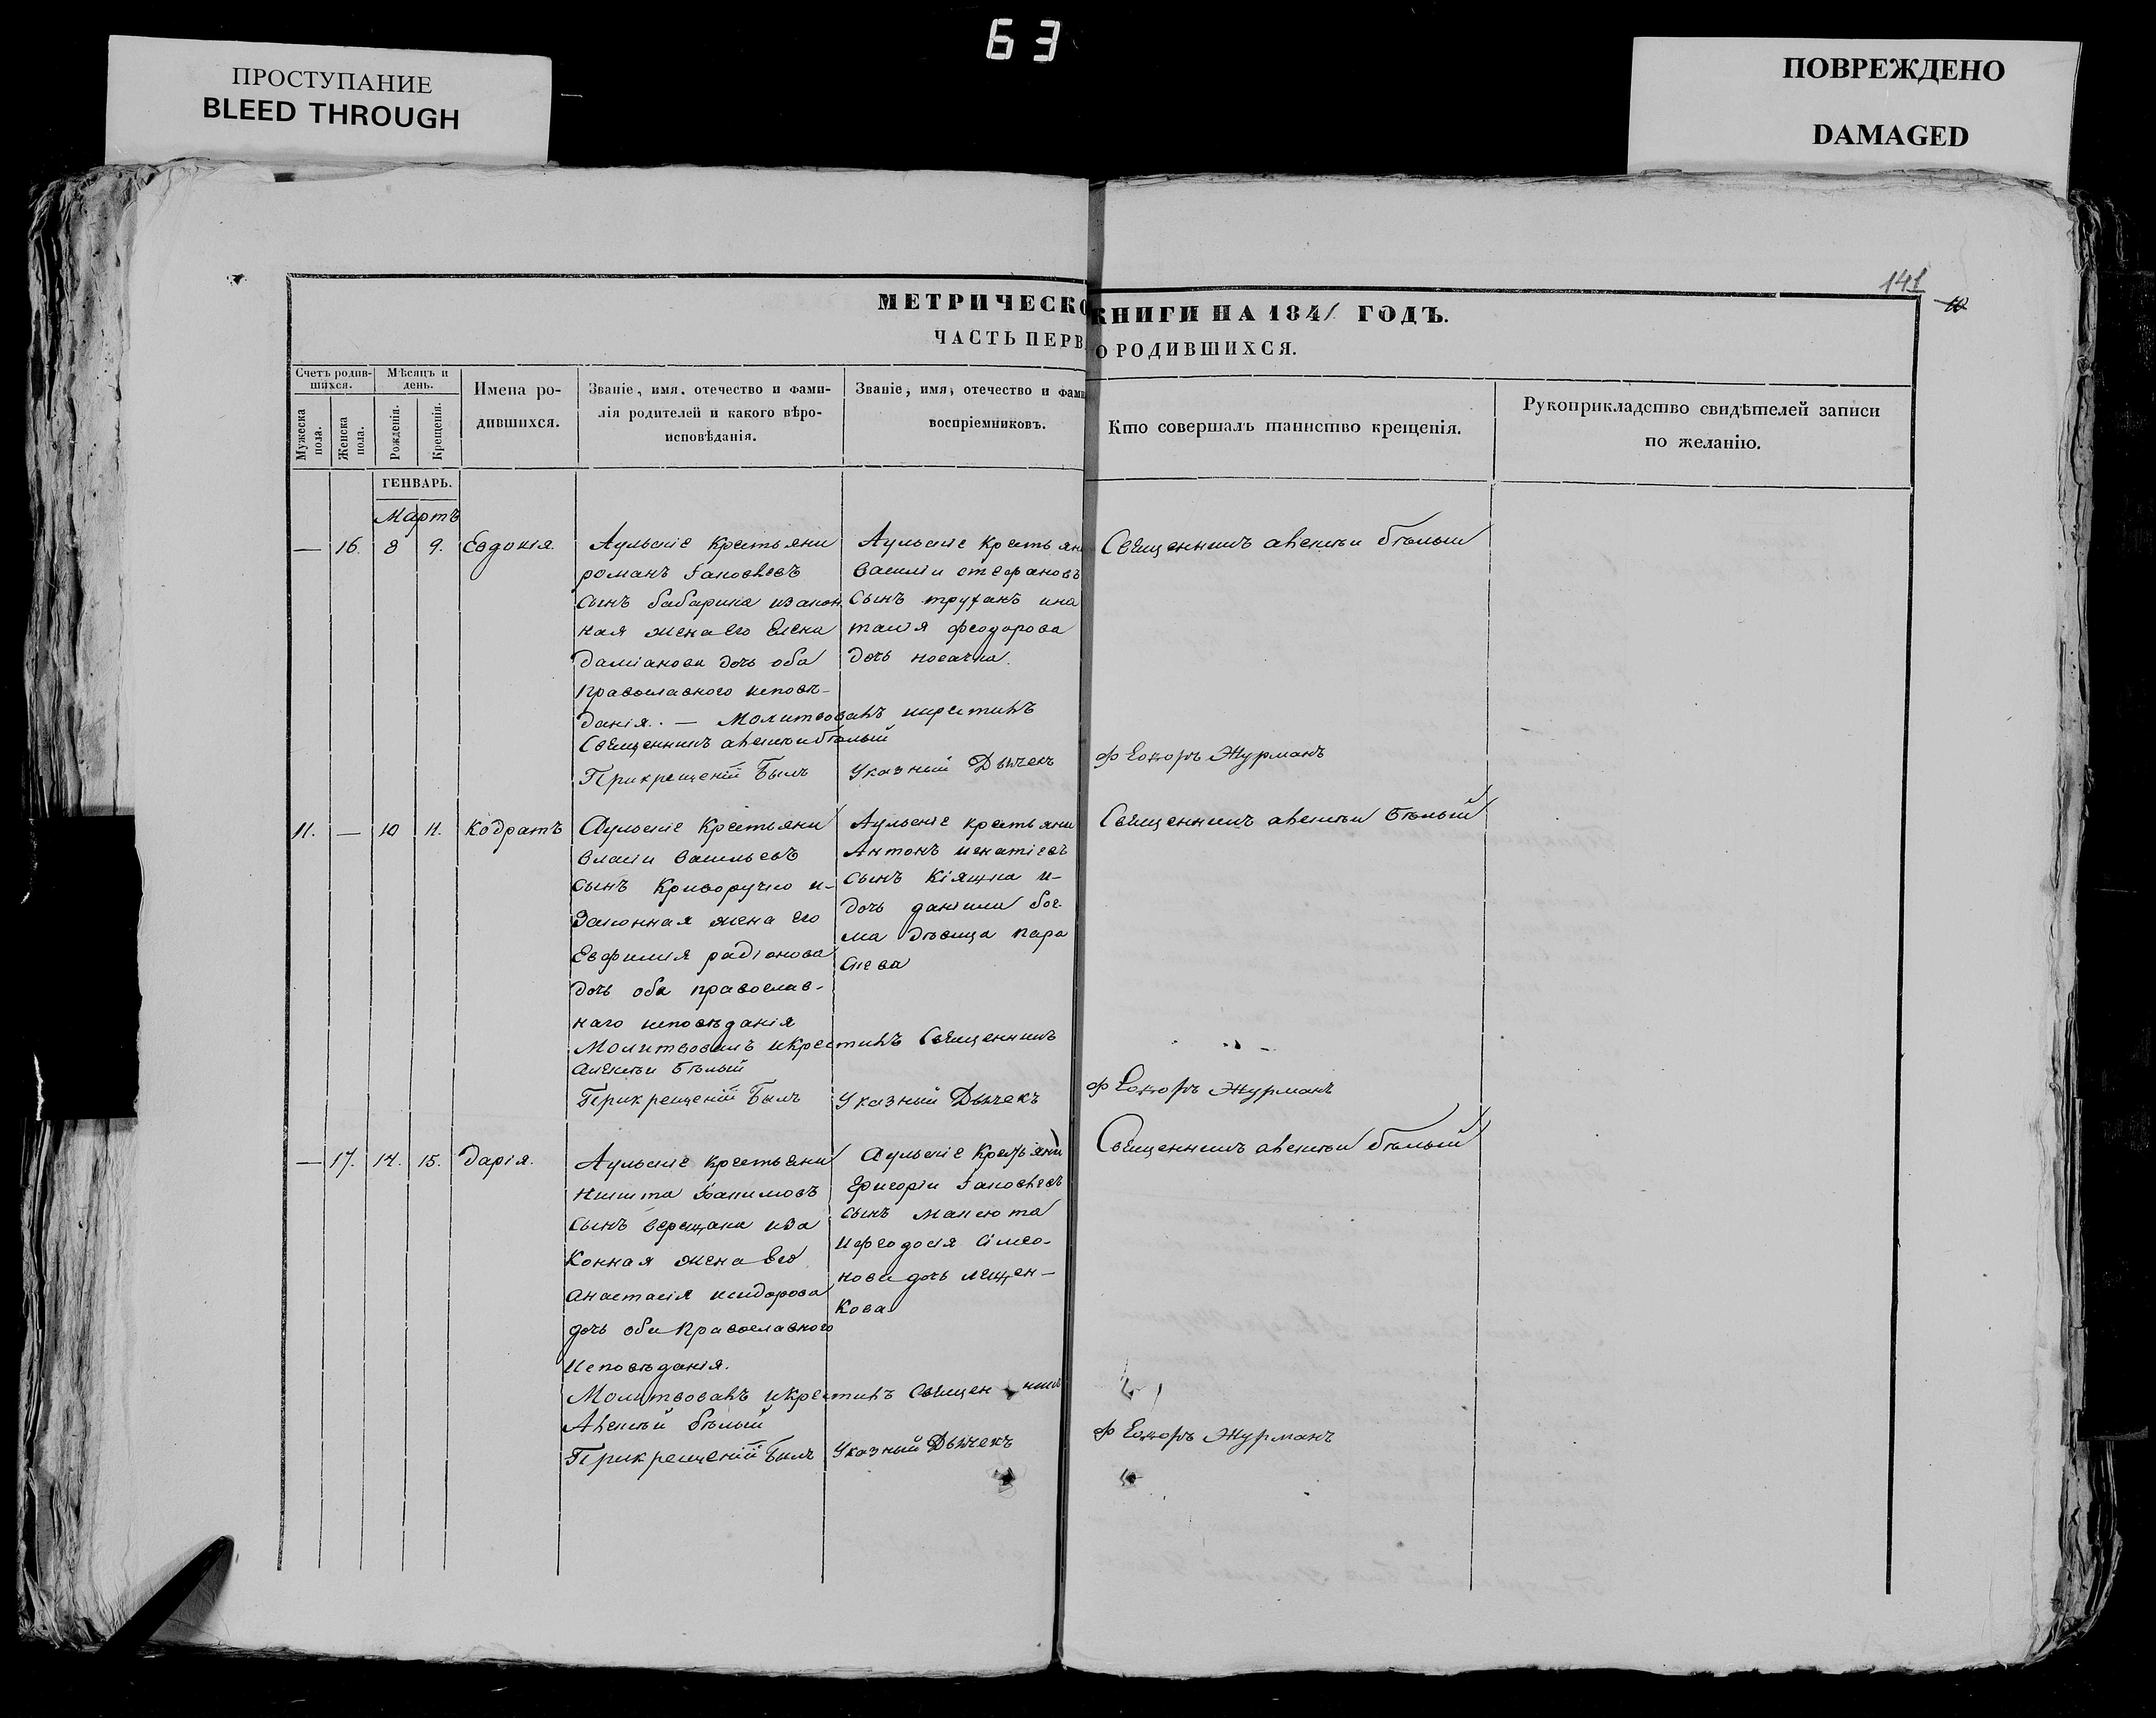 63
ПРОСТУПАНИЕ
BLEED THROUGH
ПОВРЕЖДЕНО
DAMAGED
141
МЕТРИЧЕСКО КНИГИ НА 1841 ГОДЪ.
ЧАСТЬ ПЕРВ О РОДИВШИХСЯ.
Счетъ родив-
шихся.
Мѣсяцъ и
день.
Мужеска
пола.
Женска
пола.
Рожденія.
Крещенія.
Имена ро-
дившихся.
Званіе, имя, отечество и фами-
лія родителей и какого вѣро-
исповѣданія.
Званіе, имя, отечество и фами
воспріемниковъ.
Кто совершалъ таинство крещенія.
Рукоприкладство свидѣтелей записи
по желанію.
ГЕНВАРЬ.
Мартъ
— 16. 8 9. Евдокія.
Аульскіе крестьяни
романъ Іаковлевъ
сынъ бабарика изакон
ная жена его Елена
даміанова дочь оба
православного исповѣ-
данія. — Молитвовалъ икрестилъ
Священникъ алексѣи бѣлый
Прикрещеніи Былъ
Аульскіе крестьян
василіи стефановъ
сынъ труханъ ина
талія феодорова
дочь носачка.
Указный Дьячекъ
Священникъ алексѣи бѣлыи
Ѳеодоръ Журманъ
11. — 10 11. Кодратъ
Аульскіе Крестьяни
власіи васильевъ
сынъ Криворучко и-
Законная жена его
Евфимія радіонова
дочь оба православ-
наго исповѣданія
Молитвовалъ икрестилъ Священникъ
алексѣи Бѣлый
Прикрещеніи Былъ
Аульскіе крестьяни
Антонъ игнатіевъ
сынъ Кіящка и-
дочь даніила бог-
ма дѣвица пара
скева
Указный Дьячекъ
Священникъ алексѣи Бѣлый
Ѳеодоръ Журманъ
— 17. 14. 15. Дарія.
Аульскіе крестьяни
никита
сынъ верещака иза
Конная жена Его
анастасія исидорова
дочь оба Православного
Исповѣданія.
Молитвовалъ икрестилъ Священникъ
Алексѣй бѣлый
Прикрещеніи Былъ
Аульскіе Крестьяни
Григоріи Іаковлевъ
сынъ Мансюта
ифеодосія симео-
нова дочь лещен-
Кова
Указный Дьячекъ
Священникъ алексѣи бѣлый
Ѳеодоръ Журманъ